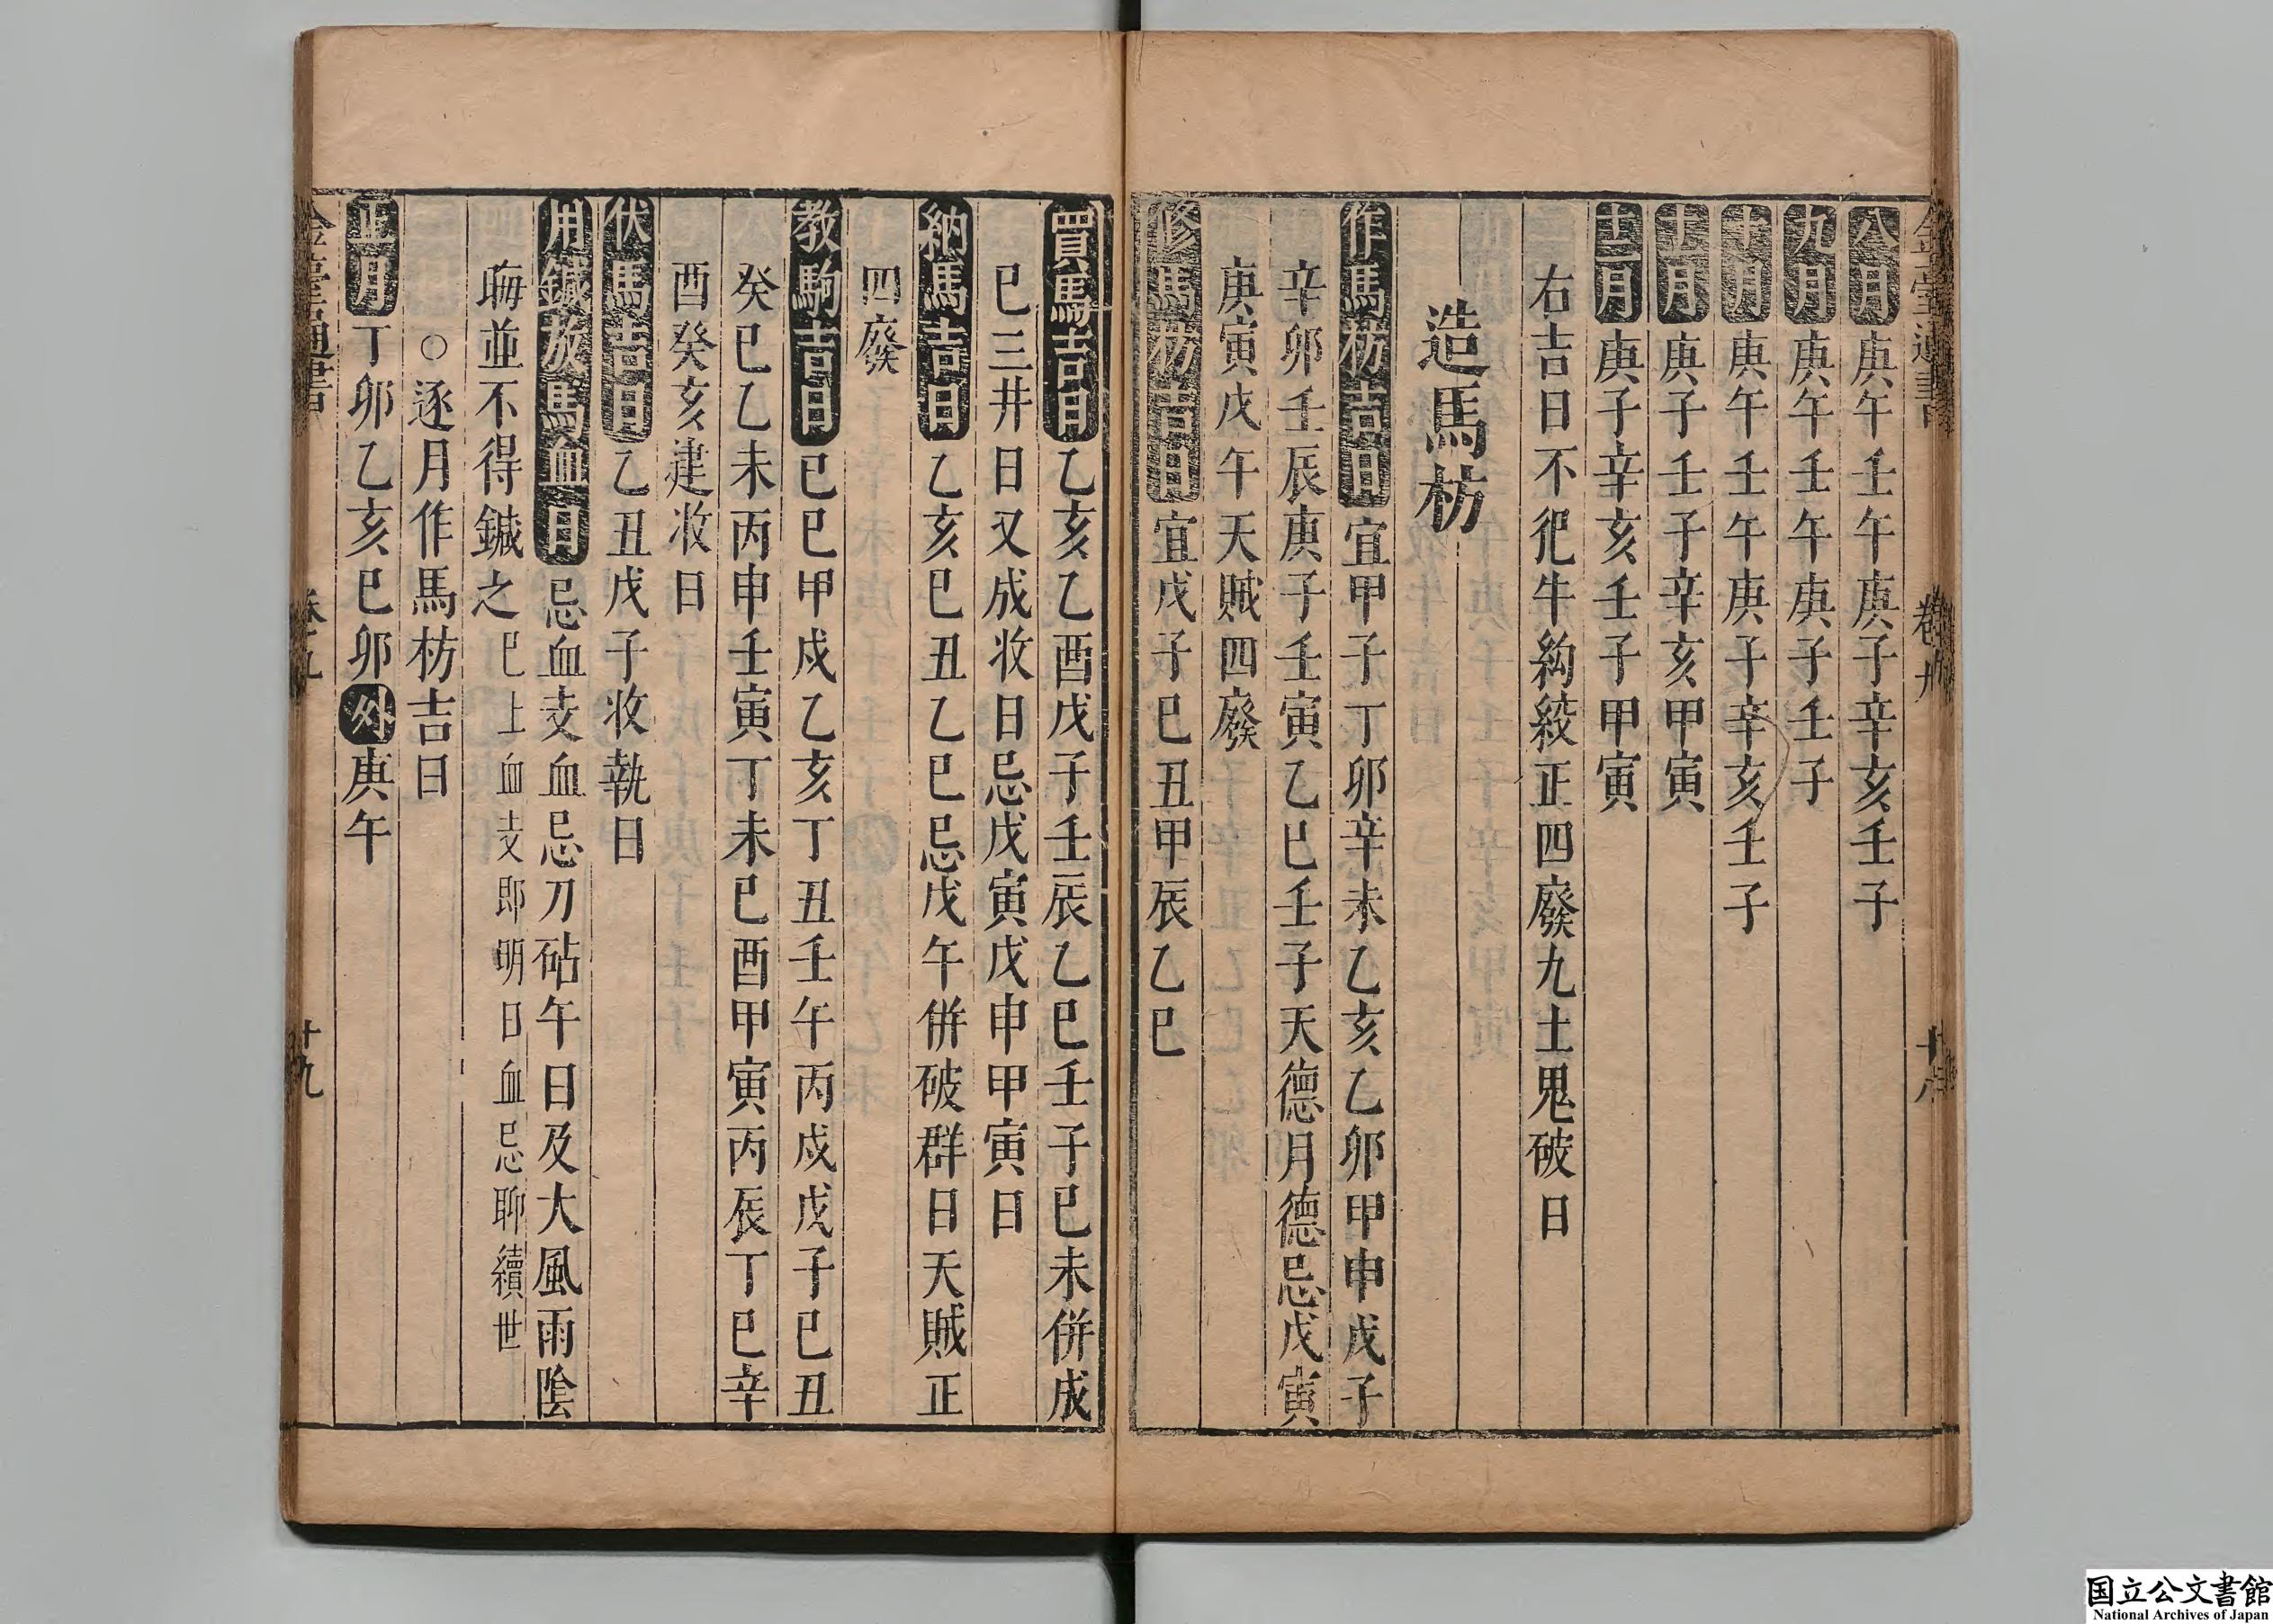 八月庚午壬午庚子辛亥壬子
九月庚午壬午庚子壬子
十月庚午壬午庚子辛亥壬子
十一月庚子壬子辛亥甲寅
十二月庚子辛亥壬子甲寅
右吉日不犯牛絇絞正四廢九土鬼破日
造馬枋
作馬枋吉日宜甲子丁卯辛未乙亥乙卯甲申戊子
辛卯壬辰庚子壬寅乙巳壬子天德月德忌戊寅
庚寅戊午天賊四廢
修馬枋吉日宜戊子巳丑甲辰乙巳
買馬吉日乙亥乙酉戊子壬辰乙巳壬子巳未併成
巳三井日又成收日忌戊寅戊申甲寅日
納馬吉日乙亥巳丑乙巳忌戊午併破群日天賊正
四廢
教駒吉日巳巳甲戌乙亥丁丑壬午丙戌戊子巳丑
癸巳乙未丙申壬寅丁未巳酉甲寅丙辰丁巳辛
酉癸亥建收日
伏馬吉日乙丑戊子收執日
用鍼放馬血日忌血支血忌刀砧午日及大風雨陰
晦並不得鍼之巳上血支即明日血忌聊續世
○逐月作馬枋吉日
正月丁卯乙亥巳卯外庚午
十九
国立公文書館
National Archives of Japan